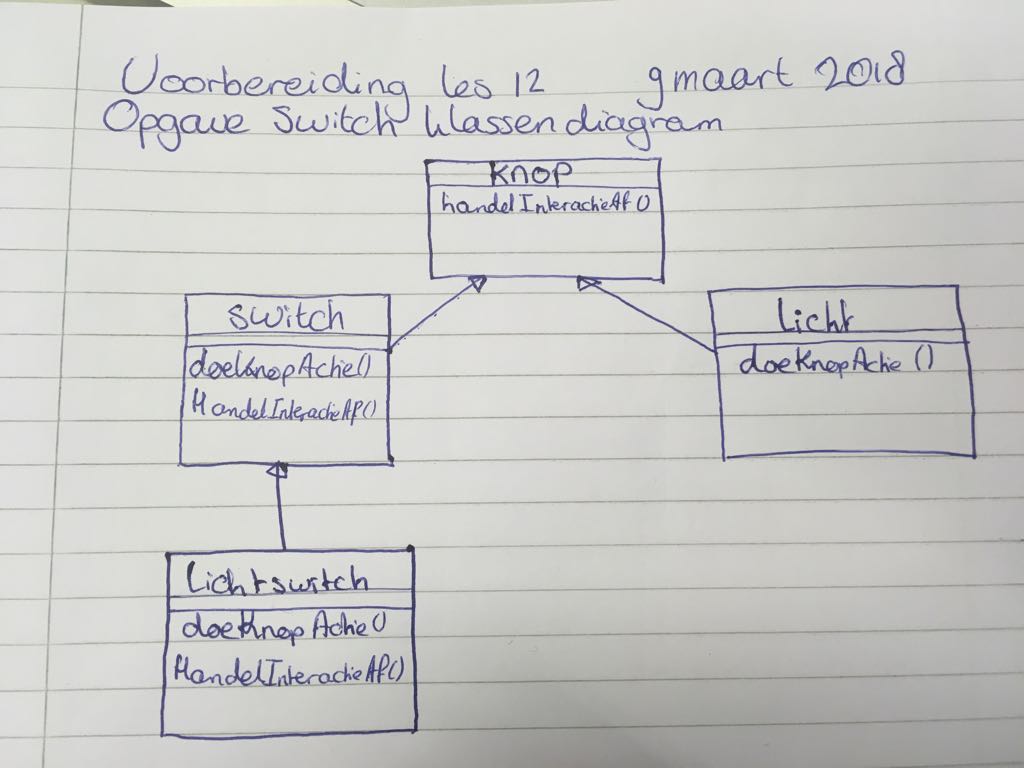 Voorbereiding les 12 9 maart 2018
Opgave Switch klassendiagram
Knop
handelInteractieAf()
Switch
doeKnopActie()
HandelInteractieAf()
Licht
doeKnopActie()
Lichtswitch
doeKnopActie()
HandelInteractieAf()